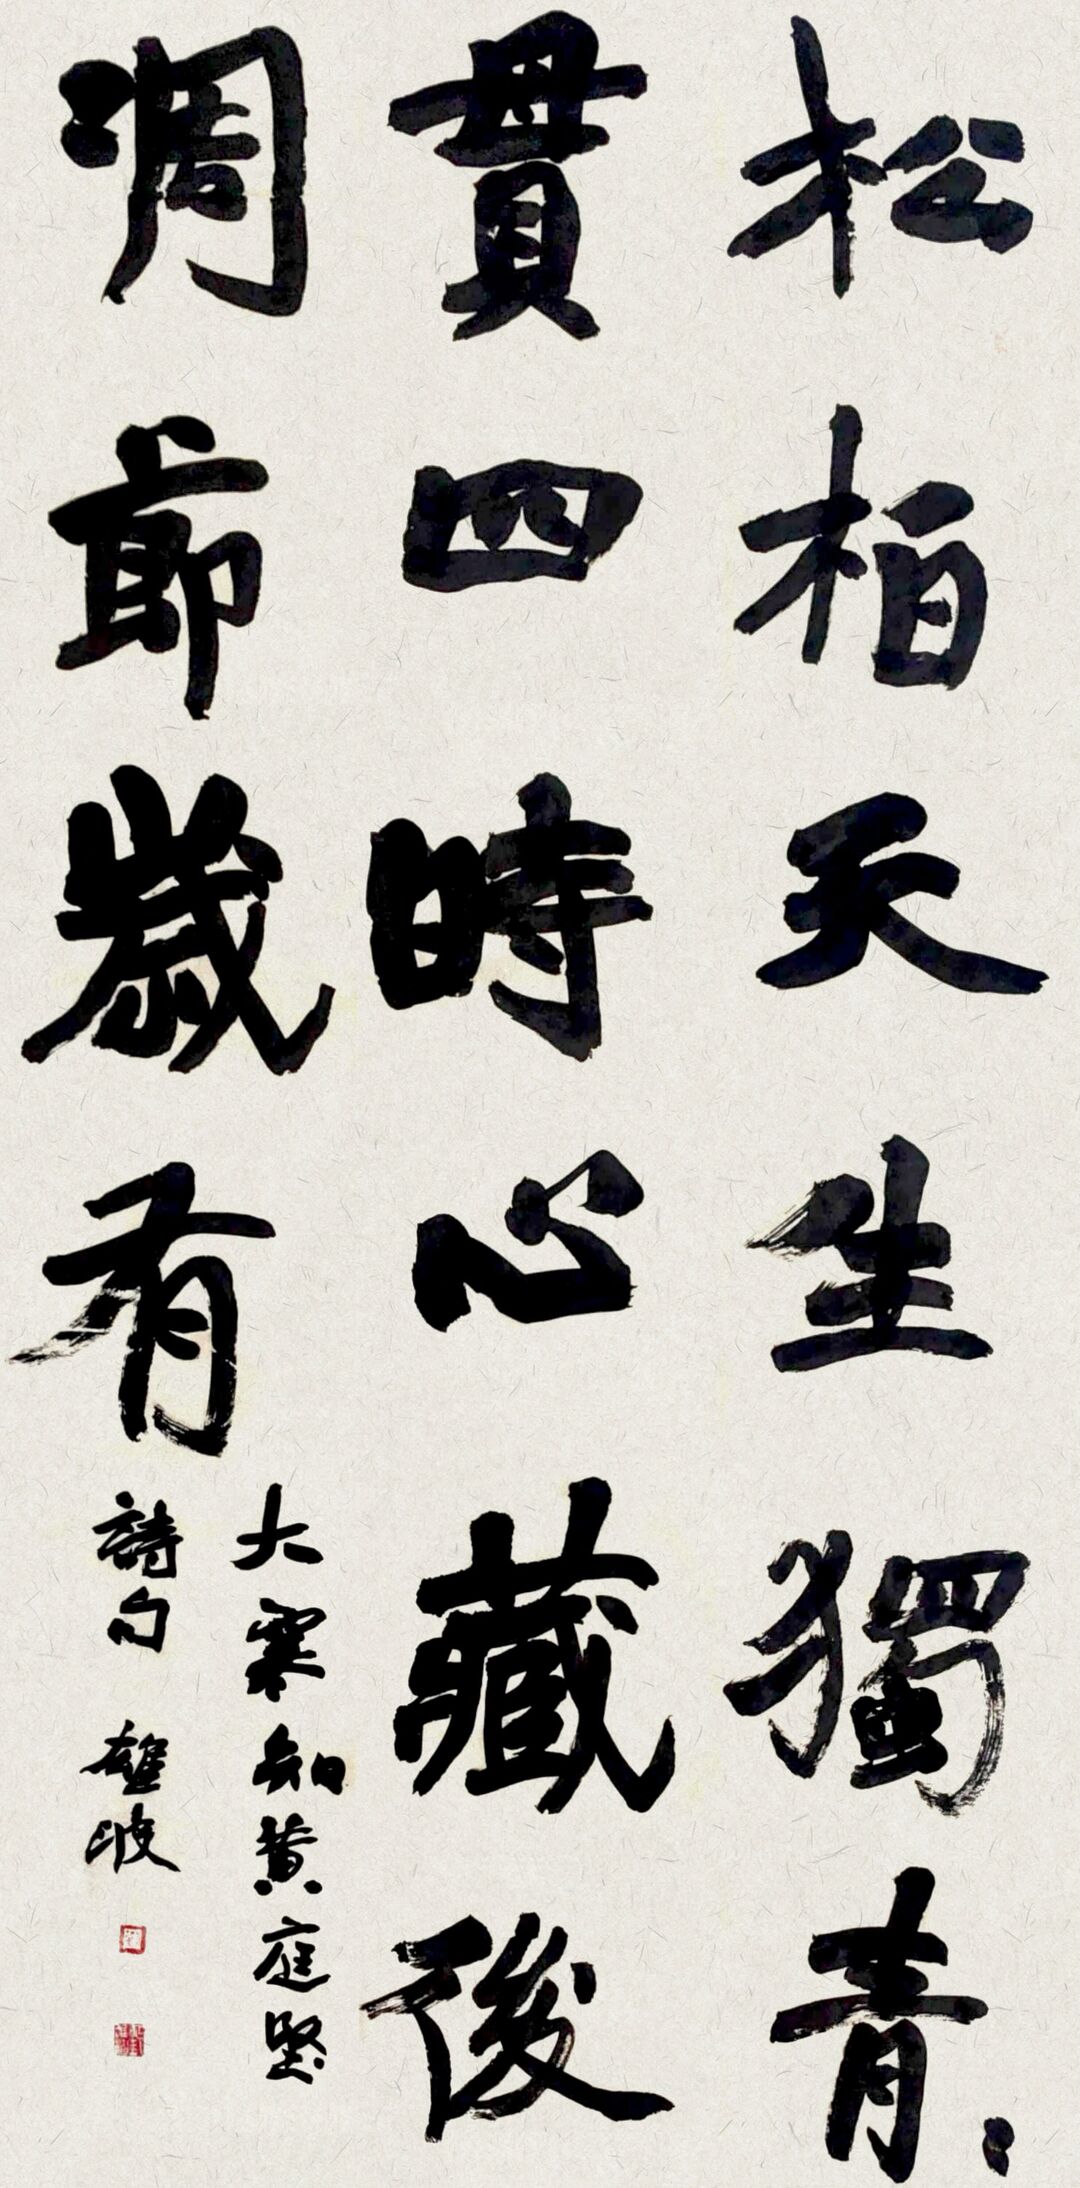 松柏天生獨青〻
貫四時心藏後
凋節歲有
大寒知黃庭堅
詩句 雄波